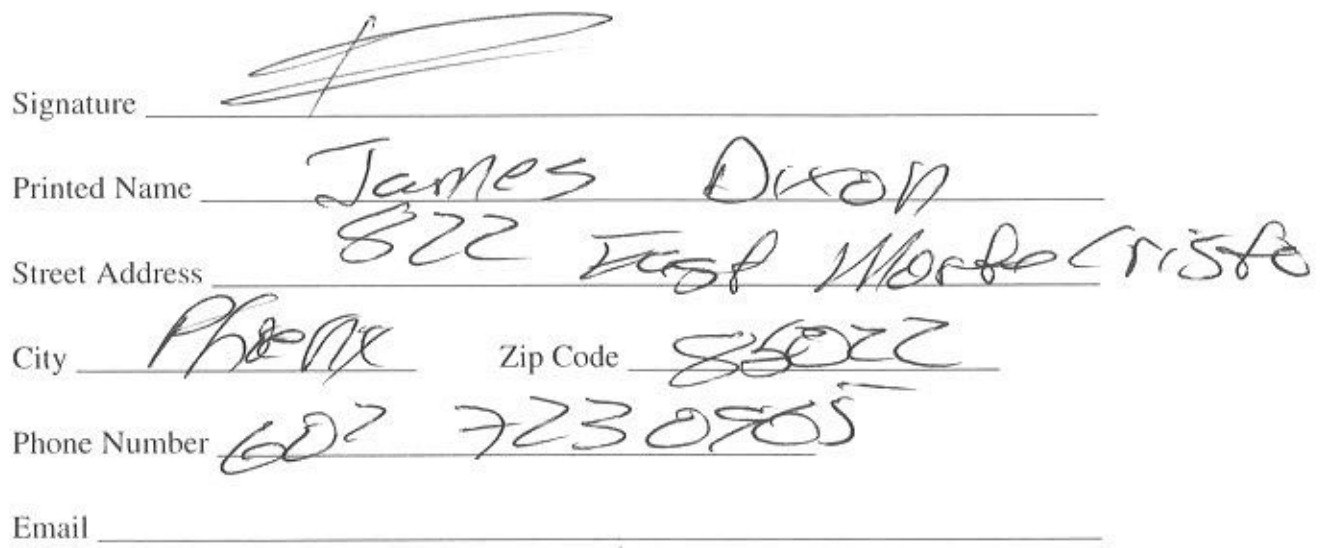 Signature
Printed Name James Dixon
Street Address 822 East Monte Cristo
City Phoenix Zip Code 85022
Phone Number 602 723
Email